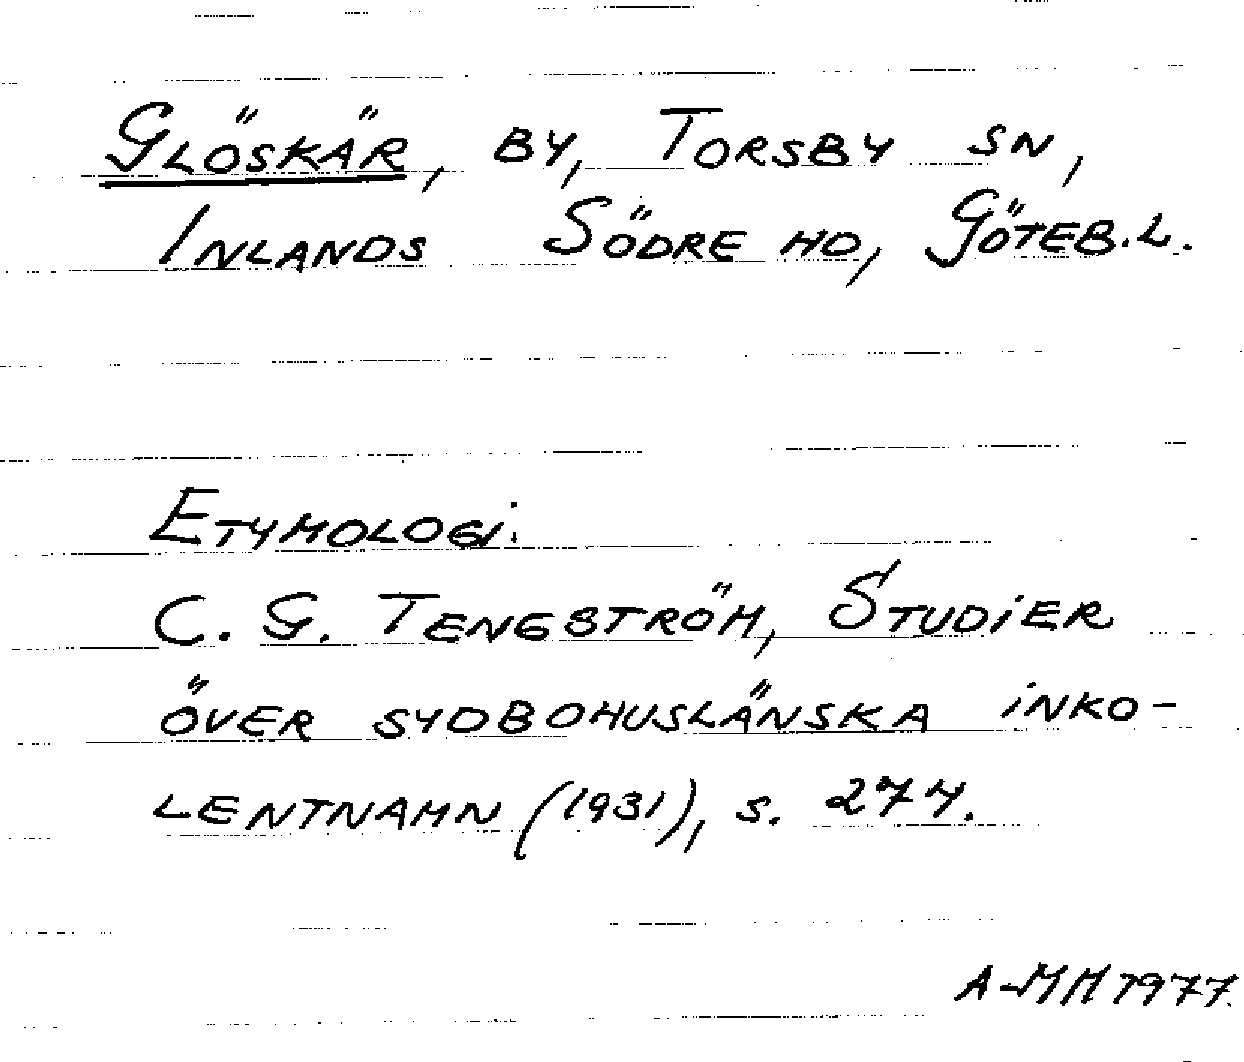 GLÖSKÄR, BY, TORSBY SN,
INLANDS SÖDRE HD, GÖTEB.L.
ETYMOLOGI:
C. G. TENGSTRÖM, STUDIER
ÖVER SYDBOHUSLÄNSKA INKO-
LENTNAMN (1931), S. 274.
A-MM 1977.